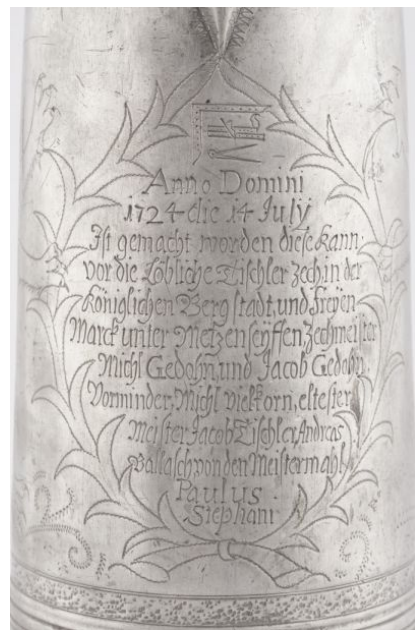 Anno Domini
1724 die 14 July
Ist gemacht worden diese Kann
vor die Löbliche Tischler zech, in der
Königlichen Berg stadt, und Freÿen
Marck unter Metzenseÿffen, Zechmeister
Michl Gedohn, und Jacob Gedohn,
Vorminder, Michl vielkorn, eltester
Meister Jacob Tischler, Andreas
Ballasch von den Meistermahl
Paulus
Stephani